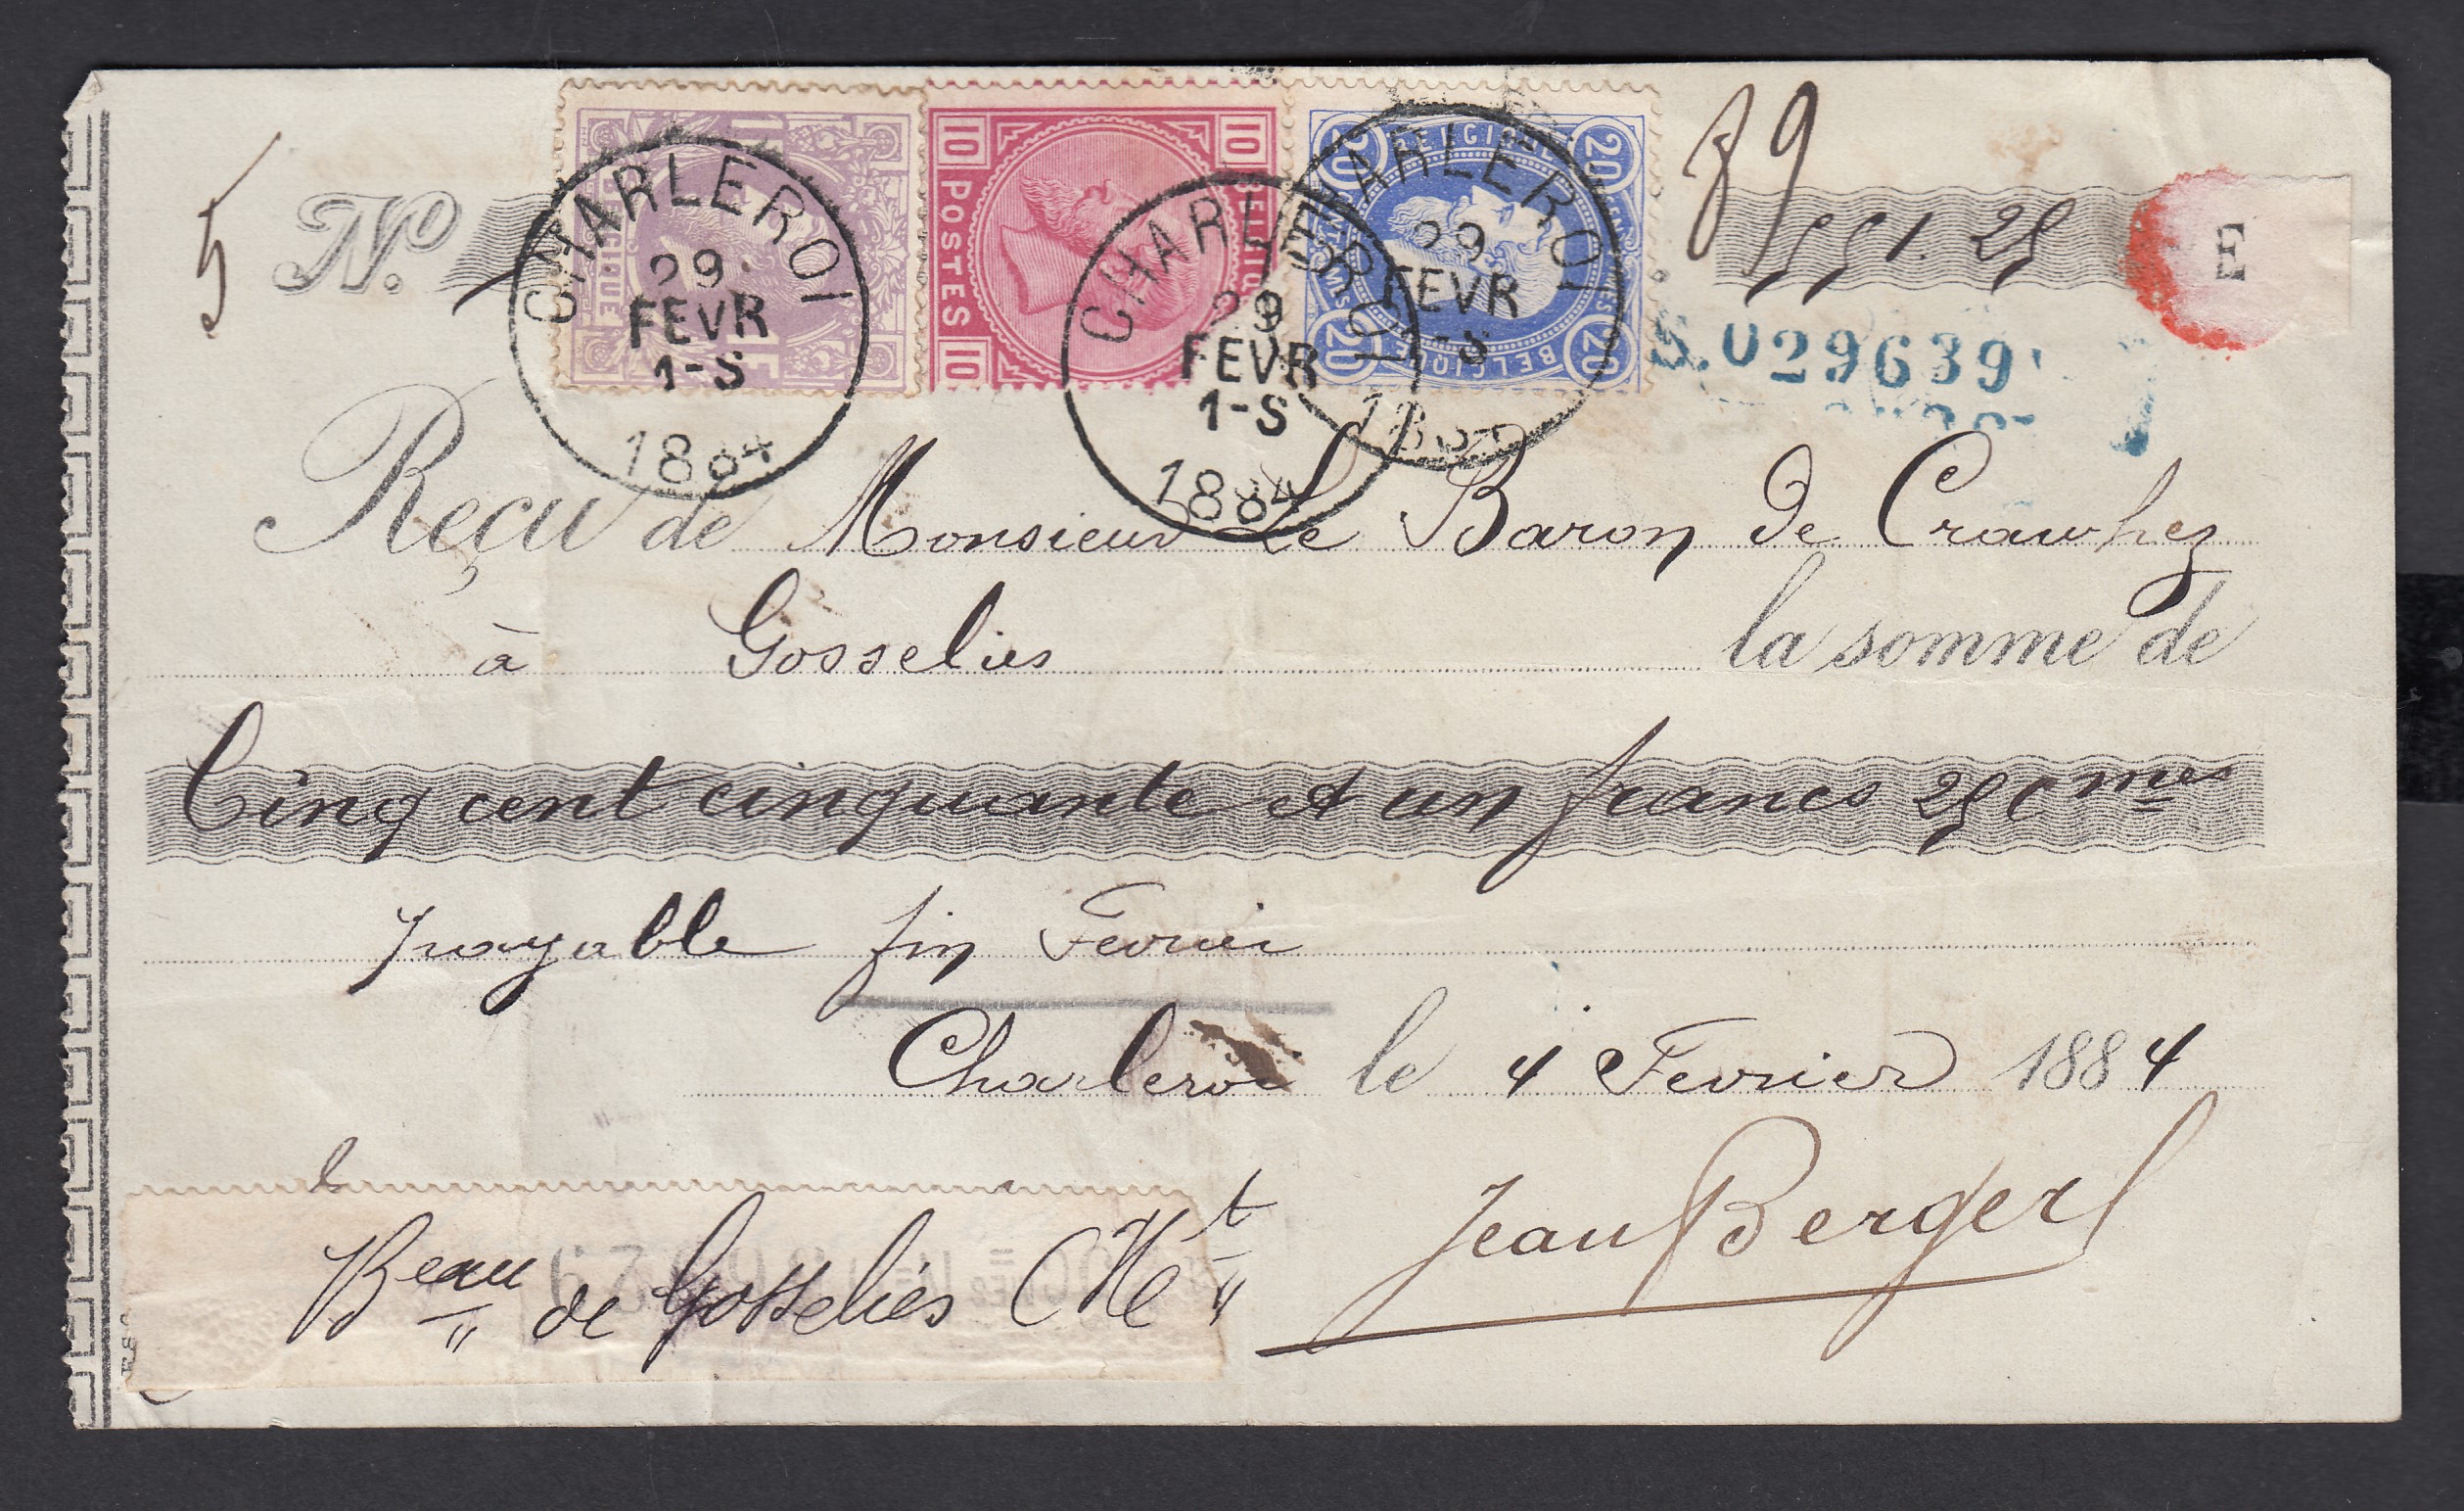 5
89
No.
551.25
E
S.029639
CHARLEROI
29
FEVR
1-S
1884
10 BELGIQUE 10
10 POSTES 10
CHARLEROI
29
FEVR
1-S
1884
20 BELGIQUE 20
20 BELGIQUE 20
CHARLEROI
29
FEVR
1-S
Reçu de Monsieur Le Baron de Crawhez
à Gosselies la somme de
Cinq cent cinquante et un francs 25 cmes
payable fin Fevrier
Charleroi le 4 Fevrier 1884
Jean Berger
Beau de Gosselies